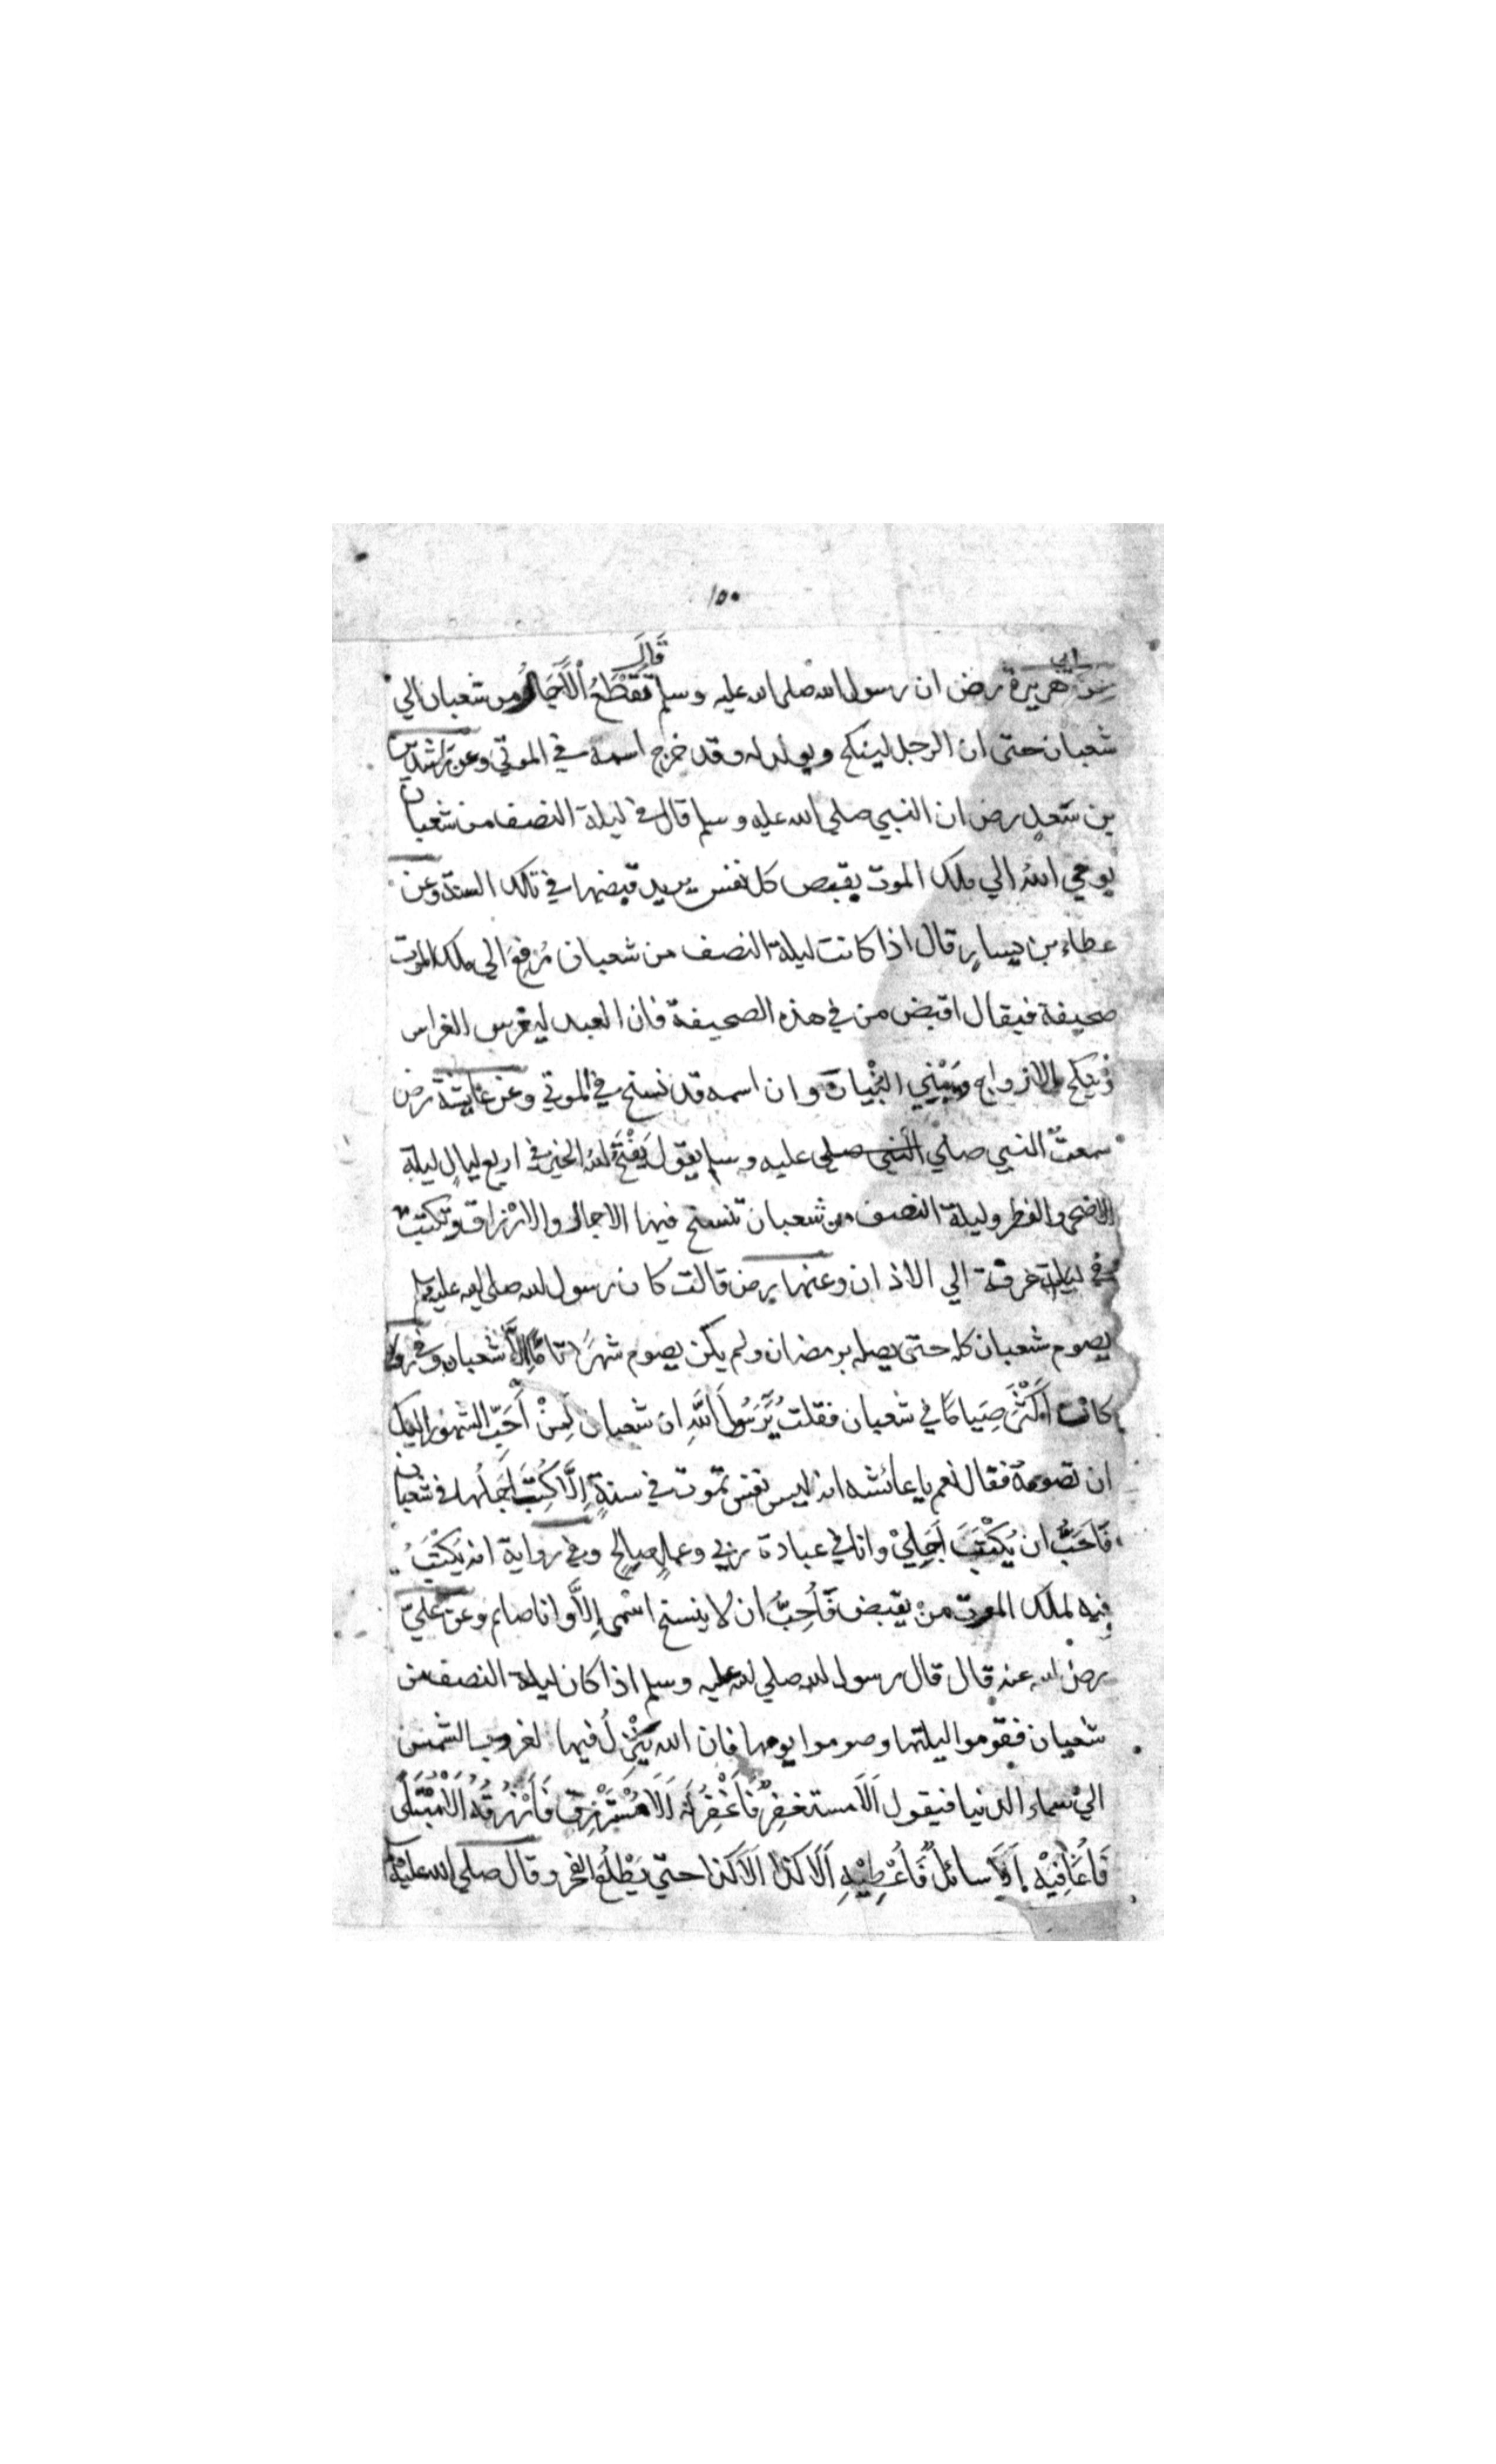 ١٥٠
ابي
قَالَ
هريرة رض ان رسول الله صلى الله عليه وسلم تَقْطَعُ الْآجَالُ من شعبان الي
شعبان حتى ان الرجل لينكح ويولد له وقد خرج اسمه في الموتي وعن راشد بن
بن سَعدٍ رض ان النبي صلي الله عليه وسلم قال في ليلة النصف من شعبان
يوحي اللهُ الي ملك الموت يقبض كل نفس يريد قبضها في تلك السنة وعن
عطاء بن يسارٍ قال اذا كانت ليلة النصف من شعبان رُفِعَ الي ملك الموت
صحيفة فيقال اقبض من في هذه الصحيفة فان العبد ليغرس الغراس
وينكح الازواج ويَبْنِي البُنْيَات وان اسمه قد نسخ في الموتي وعن عايشة رض
سمعتُ النبي صلي النبي صلي عليه وسلم يقول يَفْتَحُ لله الخير في اربع ليالٍ ليلة
الاضحى والفطر وليلة النصف من شعبان تنسخ فيها الاجال والارْزاق وتكتب
في ليلة عرفة الي الاذان وعنها رض قالت كان رسول لله صلى الله عليه وسلم
يصوم شعبان كله حتى يصله برمضان ولم يكن يصوم شهرًا تامًّا اِلَّا شعبان وفي رواية
كانت اَكْثَرَ صِيَامًا في شعبان فقلتُ يَّرَسُولَ اللَّهِ ان شعبان لَمِنْ اَحَبِّ الشهور اليك
ان تصومهُ فقال نعم يا عائشه انه ليس نفس تموت في سنةٍ اِلَّا كُتِبَ اَجَلُها في شعبان
فَاَحَبُّ ان يُكْتَبَ اَجَلِيْ وانا في عبادة ربي وعملٍ صالح وفي رواية انه يكتبُ
فيه لملك الموت منْ يقبض فَاُحِبُّ ان لا ينسخ اسْمى اِلَّا وانا صايم وعن عليّ
رضي لله عنه قال قال رسول لله صلي لله عليه وسلم اذا كان ليلة النصف من
شعبان فقوموا ليلتها وصوموا يومها فان الله يَنْزِلُ فيها لغروب الشمس
الي سماء الدنيا فيقول اَلَا مستغفِرٌ فَاَغْفِرُ لَه اَلَا مُسْتَرْزِق فَاَرْزُقُهُ اَلَا مُبْتَلًى
فَاُعَافِيْهِ اَلَا سائلٌ فَاُعْطِيْهِ اَلَا كذا اَلَا كذا حتي يَطْلُعَ الفجر وقال صلي الله عليه